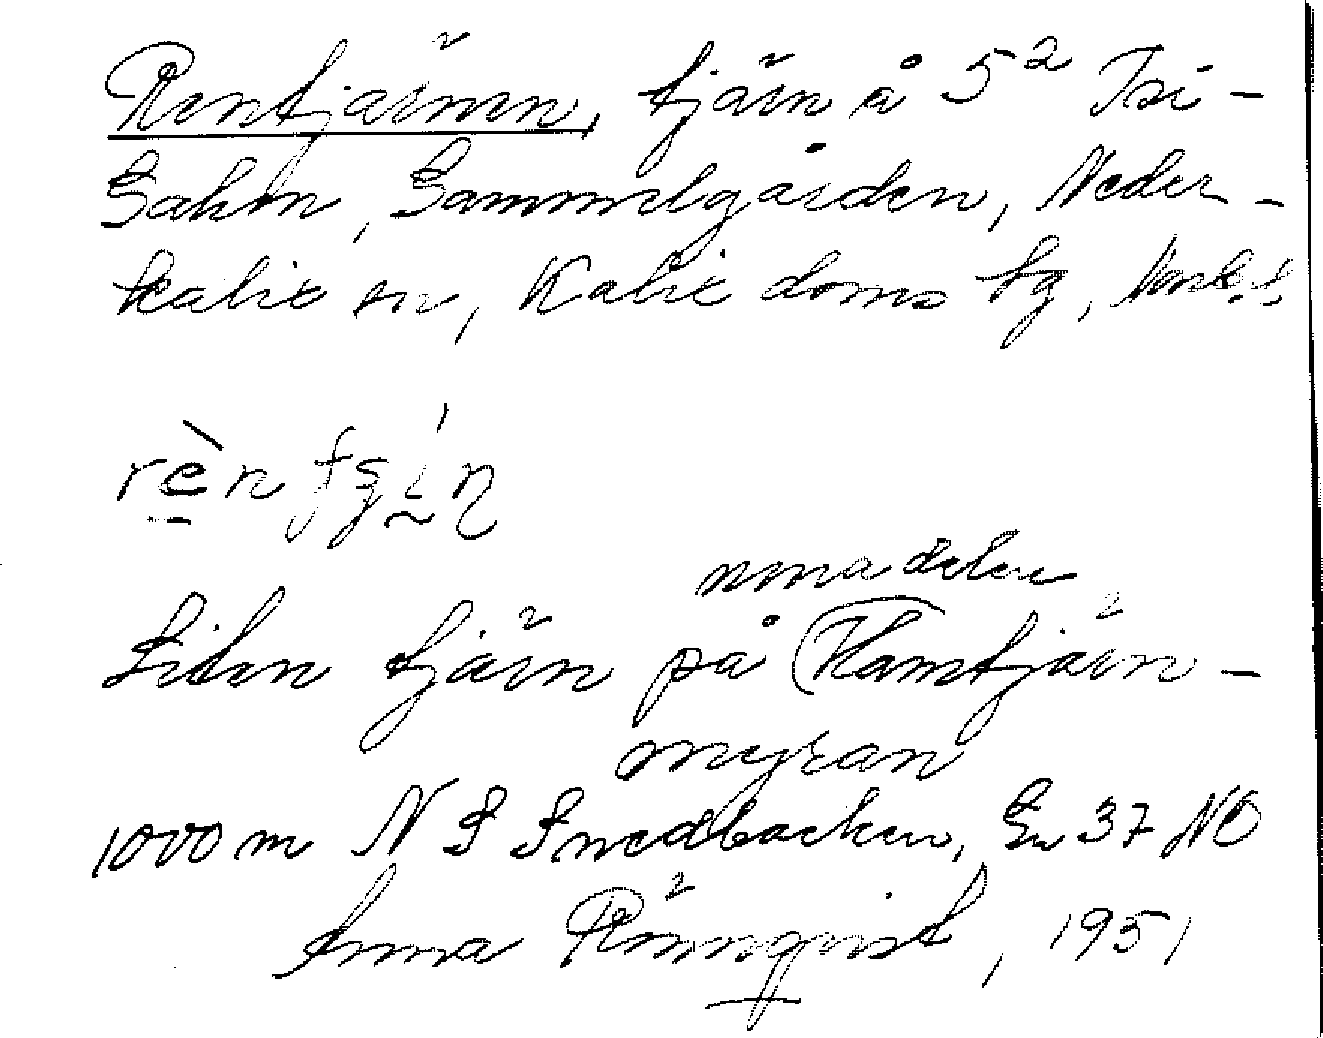 Rentjärnen, tjärn å 5² Tri-
Gahm, Gammelgården, Neder-
kalix sn, Kalix doms tg, Norrb.l.
rèn
norra delen
Liten tjärn på Hamtjärn-
myran
1000 m N S Smedbacken, Ew 37 NO
Anna Rönnqvist, 1951